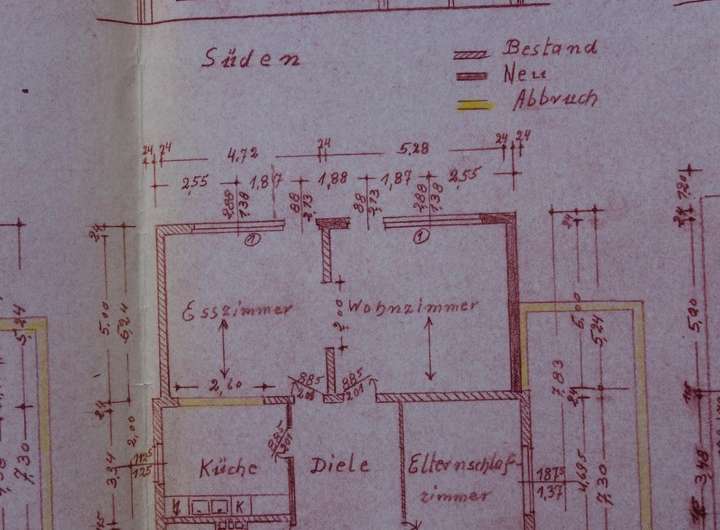 Süden
Bestand
Neu
Abbruch
24 24 4,72 24 5,28 24 24
2,55 1,87 1,88 1,87 2,55
2,88 1,38 88 2,13 88 2,13 2,88 1,38
1 1
24 24 24 24
5.00 5,24
Esszimmer
Wohnzimmer
2,00
5,00 5,24
5,24
2,60
885 2,01 885 2,01
7.83
24 24
2,00
885 2,01
Küche
Diele
Elternschlaf-
zimmer
1125 125
3,34
1875 1,37
4,695 7,30
7,30
3,48 7,30
K